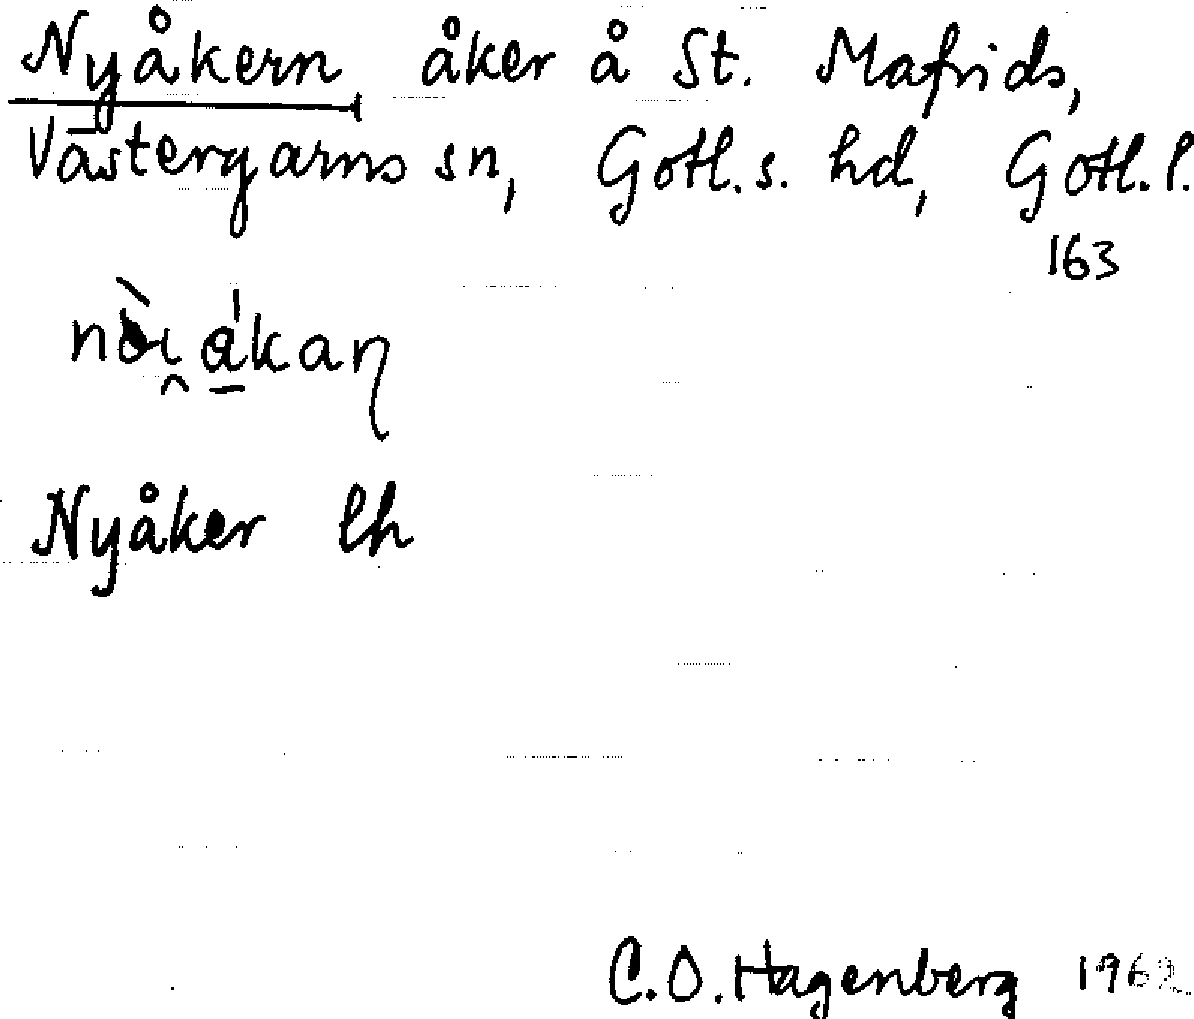 Nyåkern åker å St. Mafrids,
Västergarns sn, Gotl. s. hd, Gotl. l.
163
Nyåker lh
C.O. Hagenberg 1962